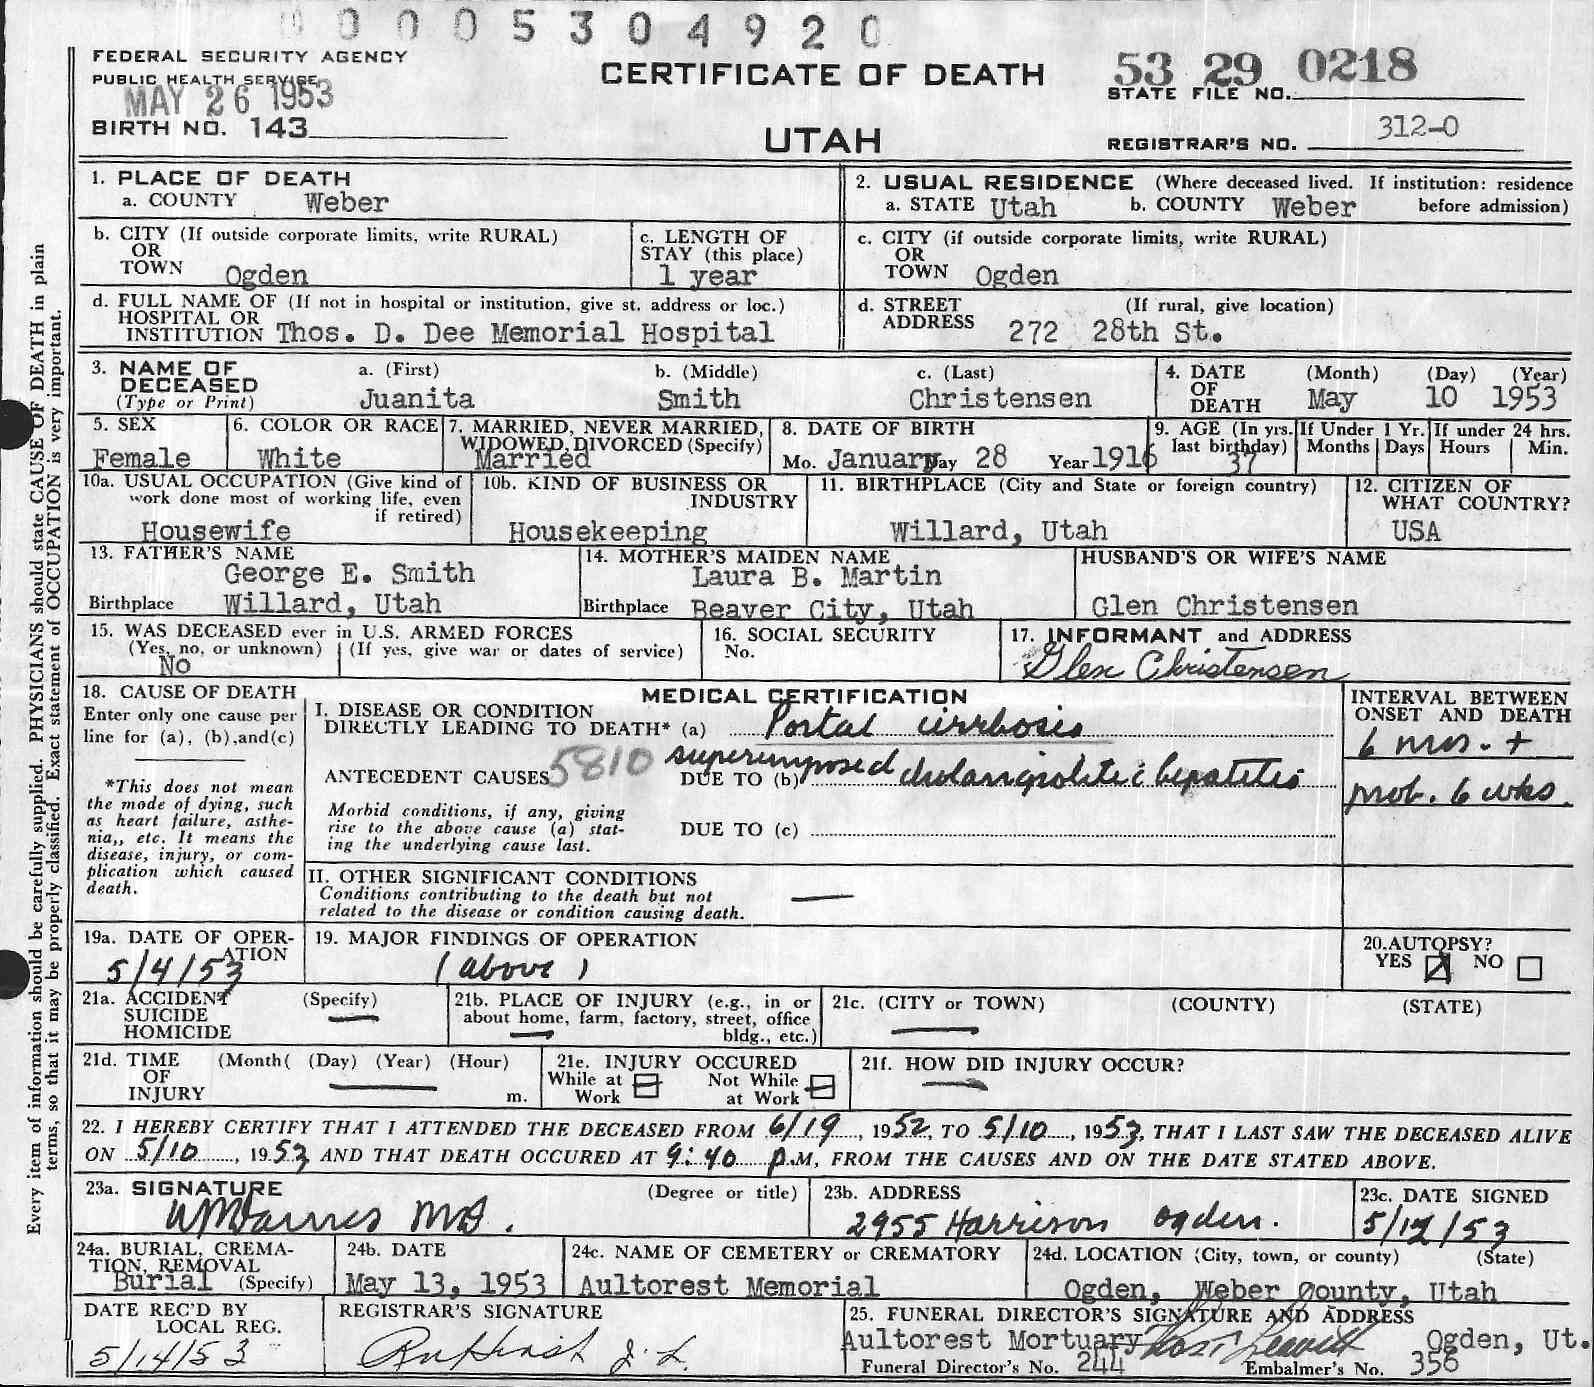 0 0 0 0 5 3 0 4 9 2 0
FEDERAL SECURITY AGENCY
PUBLIC HEALTH SERVICE
MAY 26 1953
BIRTH NO. 143
CERTIFICATE OF DEATH
UTAH
53 29 0218
STATE FILE NO.
312-0
REGISTRAR'S NO.
Every item of information should be carefully supplied. PHYSICIANS should state CAUSE OF DEATH in plain
terms, so that it may be properly classified. Exact statement of OCCUPATION is very important.
1. PLACE OF DEATH
a. COUNTY Weber
2. USUAL RESIDENCE (Where deceased lived. If institution: residence
a. STATE Utah b. COUNTY Weber before admission)
b. CITY (If outside corporate limits, write RURAL)
OR
TOWN Ogden
c. LENGTH OF
STAY (this place)
1 year
c. CITY (if outside corporate limits, write RURAL)
OR
TOWN Ogden
d. FULL NAME OF (If not in hospital or institution, give st. address or loc.)
HOSPITAL OR
INSTITUTION Thos. D. Dee Memorial Hospital
d. STREET (If rural, give location)
ADDRESS 272 28th St.
3. NAME OF a. (First) b. (Middle) c. (Last)
DECEASED
(Type or Print) Juanita Smith Christensen
4. DATE (Month) (Day) (Year)
OF
DEATH May 10 1953
5. SEX
Female
6. COLOR OR RACE
White
7. MARRIED, NEVER MARRIED,
WIDOWED, DIVORCED (Specify)
Married
8. DATE OF BIRTH
Mo. January Day 28 Year 1916
9. AGE (In yrs.
last birthday)
37
If Under 1 Yr.
Months Days
If under 24 hrs.
Hours Min.
10a. USUAL OCCUPATION (Give kind of
work done most of working life, even
if retired)
Housewife
10b. KIND OF BUSINESS OR
INDUSTRY
Housekeeping
11. BIRTHPLACE (City and State or foreign country)
Willard, Utah
12. CITIZEN OF
WHAT COUNTRY?
USA
13. FATHER'S NAME
George E. Smith
Birthplace Willard, Utah
14. MOTHER'S MAIDEN NAME
Laura B. Martin
Birthplace Beaver City, Utah
HUSBAND'S OR WIFE'S NAME
Glen Christensen
15. WAS DECEASED ever in U.S. ARMED FORCES
(Yes, no, or unknown) (If yes, give war or dates of service)
No
16. SOCIAL SECURITY
No.
17. INFORMANT and ADDRESS
Glen Christensen
18. CAUSE OF DEATH
Enter only one cause per
line for (a), (b),and(c)
*This does not mean
the mode of dying, such
as heart failure, asthe-
nia,, etc. It means the
disease, injury, or com-
plication which caused
death.
MEDICAL CERTIFICATION
I. DISEASE OR CONDITION
DIRECTLY LEADING TO DEATH* (a) Portal cirrhosis
5810 superimposed
ANTECEDENT CAUSES DUE TO (b) cholangiolitic hepatitis
Morbid conditions, if any, giving
rise to the above cause (a) stat-
ing the underlying cause last.
DUE TO (c)
INTERVAL BETWEEN
ONSET AND DEATH
6 mos. +
prob. 6 wks.
II. OTHER SIGNIFICANT CONDITIONS
Conditions contributing to the death but not
related to the disease or condition causing death.
19a. DATE OF OPER-
ATION
5/4/53
19. MAJOR FINDINGS OF OPERATION
(above)
20.AUTOPSY?
YES NO
21a. ACCIDENT (Specify)
SUICIDE
HOMICIDE
21b. PLACE OF INJURY (e.g., in or
about home, farm, factory, street, office
bldg., etc.)
21c. (CITY or TOWN) (COUNTY) (STATE)
21d. TIME (Month( (Day) (Year) (Hour)
OF
INJURY m.
21e. INJURY OCCURED
While at Not While
Work at Work
21f. HOW DID INJURY OCCUR?
22. I HEREBY CERTIFY THAT I ATTENDED THE DECEASED FROM 6/19, 1952, TO 5/10, 1953, THAT I LAST SAW THE DECEASED ALIVE
ON 5/10, 1953 AND THAT DEATH OCCURED AT 9:40 P.M, FROM THE CAUSES AND ON THE DATE STATED ABOVE.
23a. SIGNATURE (Degree or title)
MD.
23b. ADDRESS
2955 Harrison Ogden.
23c. DATE SIGNED
5/12/53
24a. BURIAL, CREMA-
TION, REMOVAL
Burial (Specify)
24b. DATE
May 13, 1953
24c. NAME OF CEMETERY or CREMATORY
Aultorest Memorial
24d. LOCATION (City, town, or county) (State)
Ogden, Weber County, Utah
DATE REC'D BY
LOCAL REG.
5/14/53
REGISTRAR'S SIGNATURE
25. FUNERAL DIRECTOR'S SIGNATURE AND ADDRESS
Aultorest Mortuary Ogden, Ut.
Funeral Director's No. 244 Embalmer's No. 356